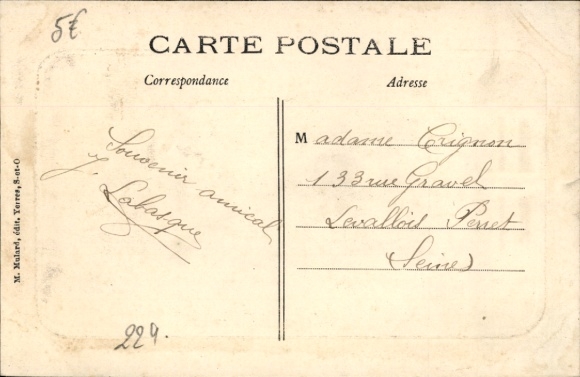 5€
CARTE POSTALE
Correspondance
Adresse
Souvenir amical
J. Labasque
Madame Crignon
133 rue Gravel
Levallois Perret
(Seine)
M. Mulard, édit. Yerres, S-et-O
229.